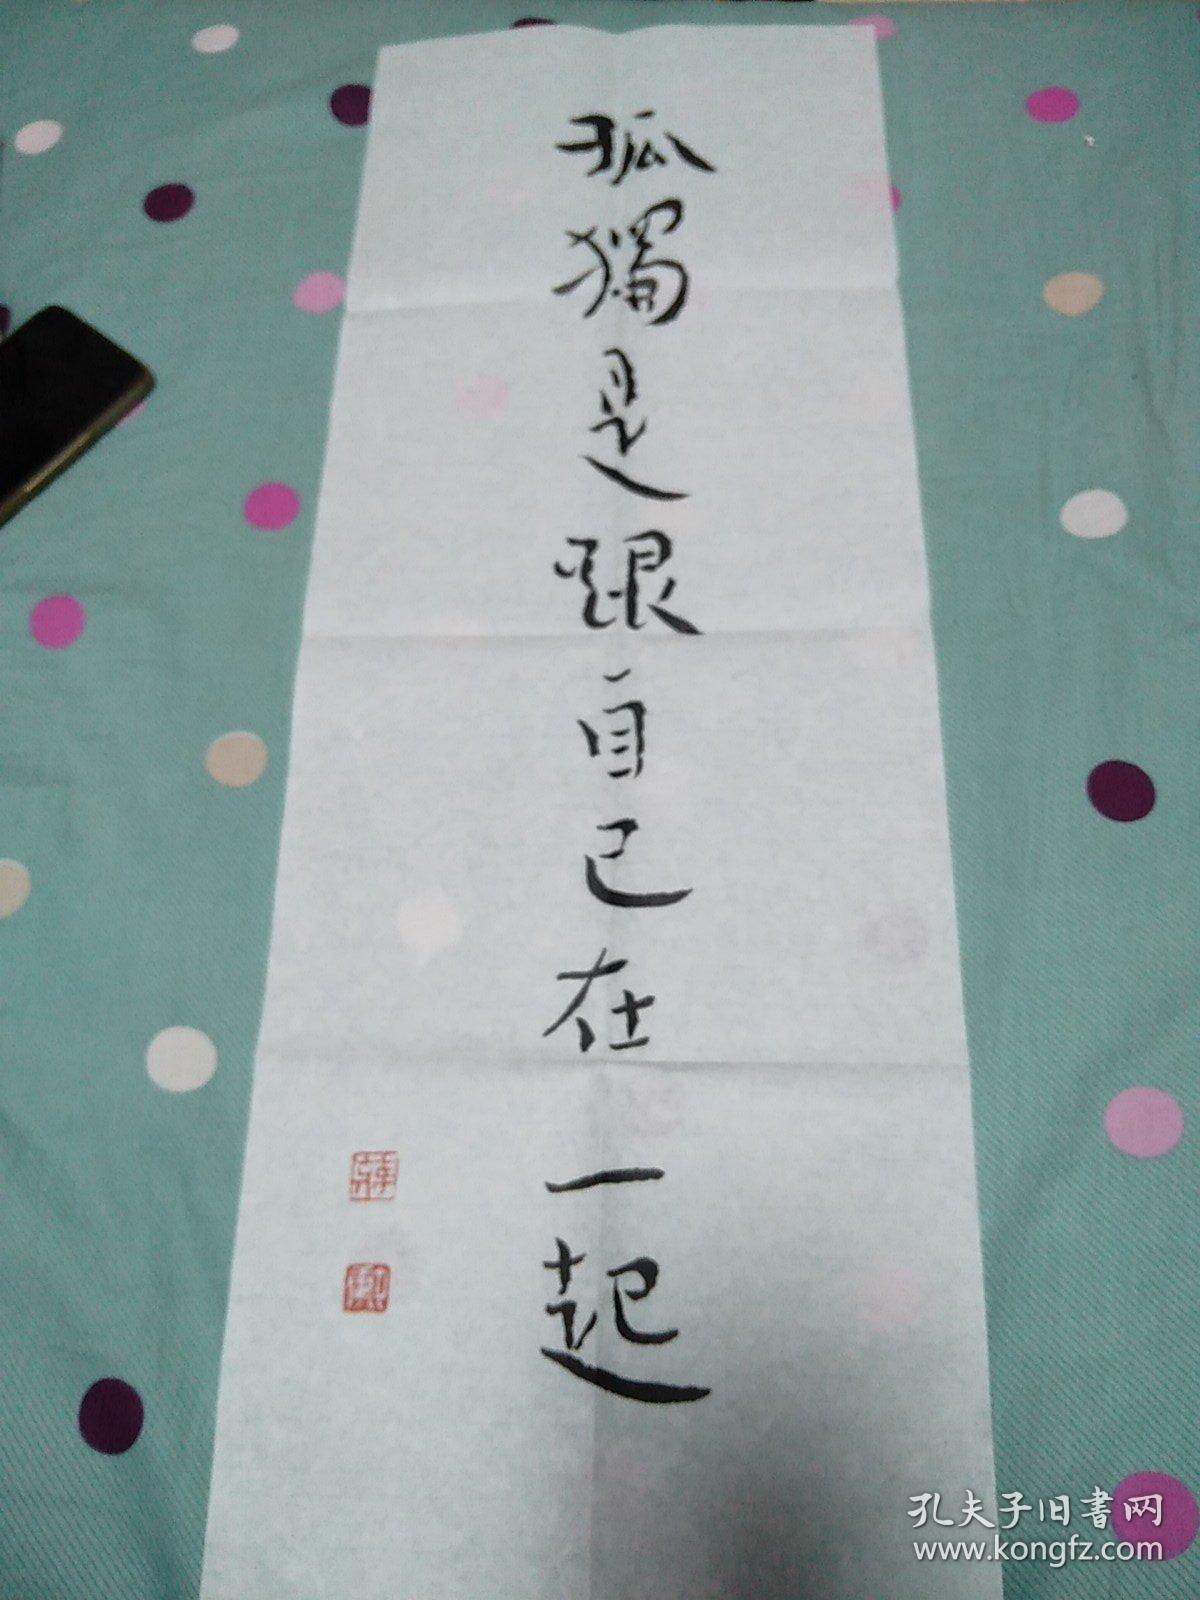 孤獨是跟自己在一起
蔣
勳
孔夫子旧書网
www.kongfz.com